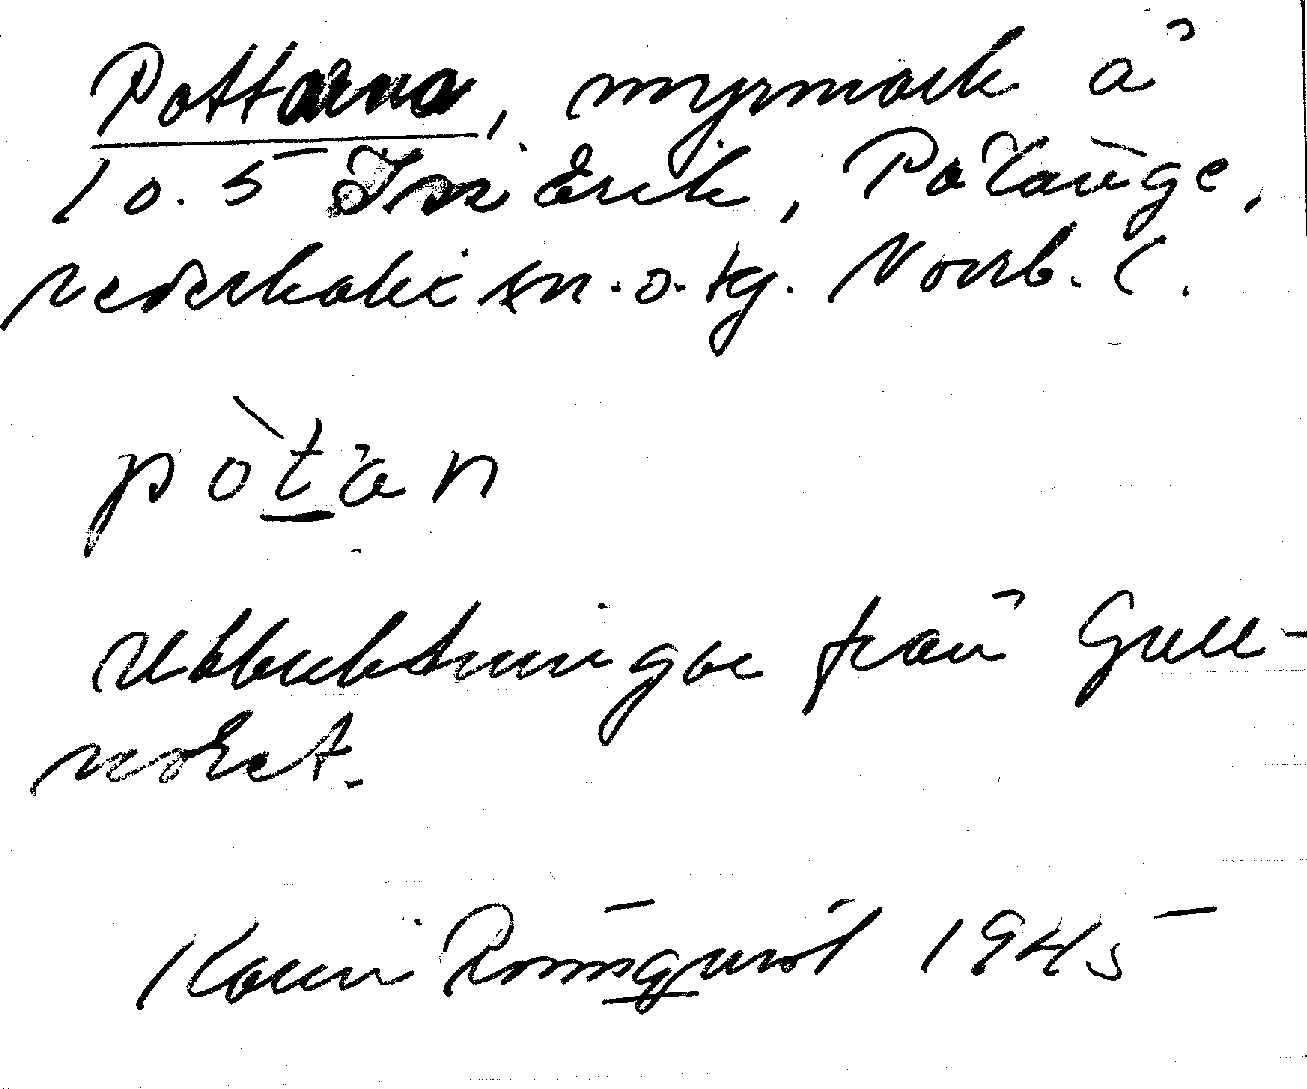 Pottarna, myrmark å
1 o. 5 Erik, Påtänge,
Nederkalix sn. o. tg. Norrb. l.
pòtan
Utbuktningar från Gull-
Karin Rönnqvist 1945